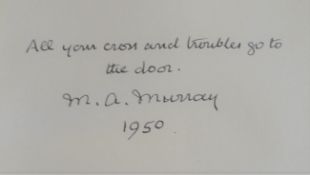 All your cross and troubles go to
the door.
M. A. Murray
1950.